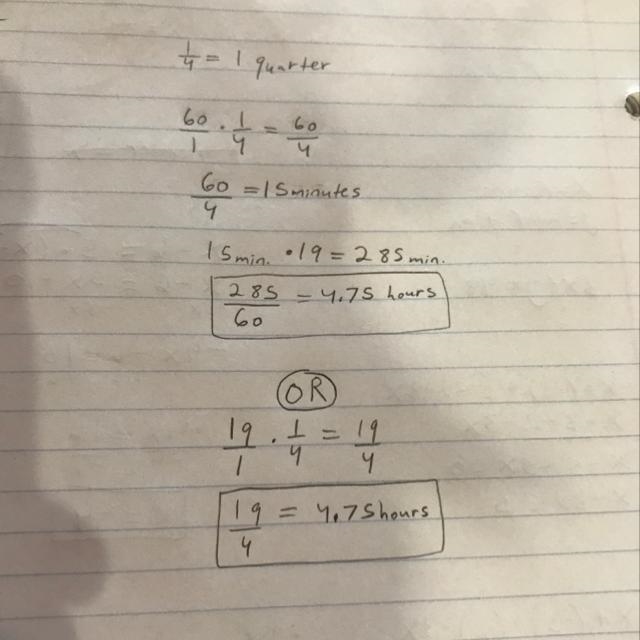 1/4 = 1 quarter
60/1 · 1/4 = 60/4
60/4 = 15 minutes
15 min. · 19 = 285 min.
285/60 = 4.75 hours
OR
19/1 · 1/4 = 19/4
19/4 = 4.75 hours